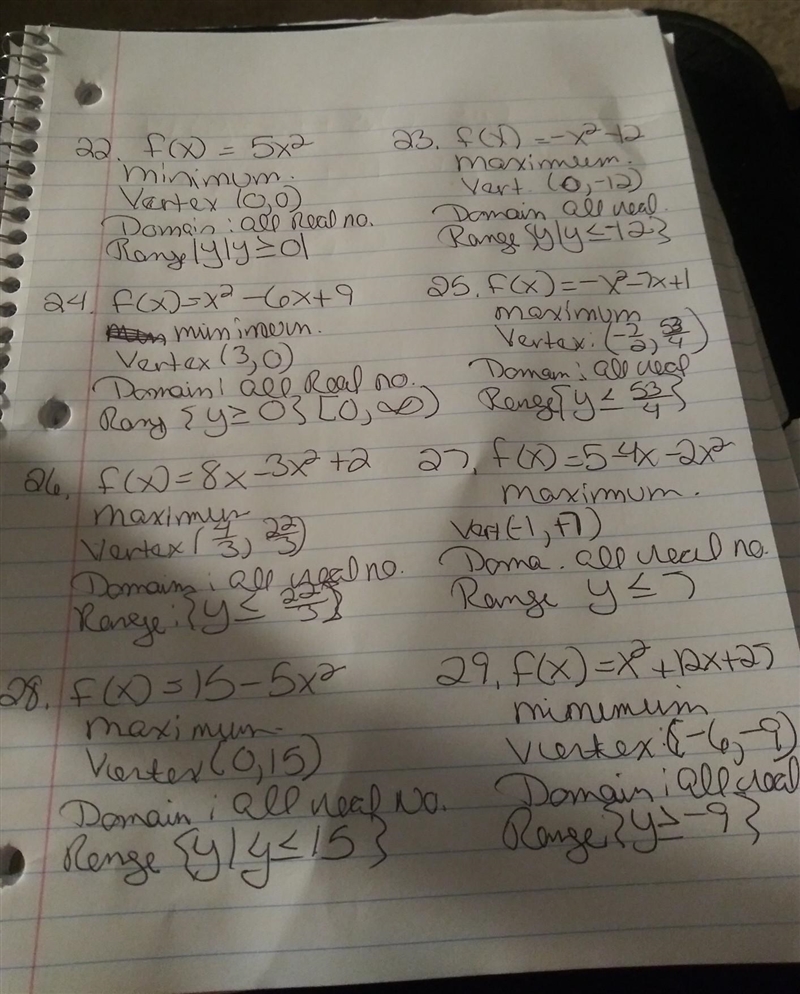 22. f(x) = 5x²
minimum.
Vertex (0,0)
Domain : all Real no.
Range |y|y ≥ 0|
23. f(x) = -x² -12
maximum.
Vert. (0,-12)
Domain all real.
Range {y|y ≤ -12}
24. f(x) = x² - 6x + 9
minimum.
Vertex (3,0)
Domain : all Real no.
Rang {y ≥ 0} [0, ∞)
25. f(x) = -x² - 7x + 1
maximum
Vertex: (-7/2, 53/4)
Domain : all real
Range {y ≤ 53/4}
26. f(x) = 8x - 3x² + 2
maximum
Vertex (4/3, 22/3)
Domain : all real no.
Range : {y ≤ 22/3}
27. f(x) = 5-4x - 2x²
maximum.
Vert (-1, +7)
Doma. all real no.
Range y ≤ 7
28. f(x) = 15 - 5x²
maximum.
Vertex (0,15)
Domain : all real No.
Range {y | y ≤ 15}
29. f(x) = x² + 12x + 27
minimum
Vertex : (-6, -9)
Domain : all real
Range {y ≥ -9}